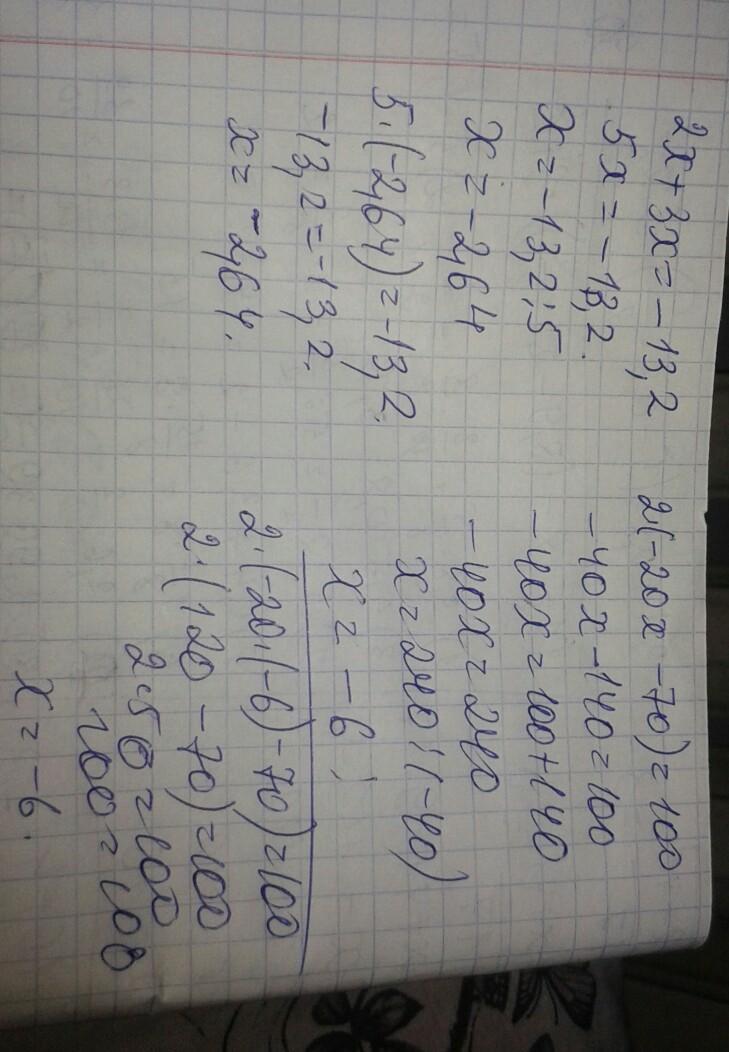 2x+3x=-13,2
5x=-13,2.
x=-13,2:5
x=-2,64
5.(-2,64)=-13,2.
-13,2=-13,2.
x=-2,64.
2.(-20x-70)=100
-40x-140=100
-40x=100+140
-40x=240
x=240:(-40)
x=-6;
2.(-20.(-6)-70)=100
2.(120-70)=100
2.50=100
100=100
x=-6.